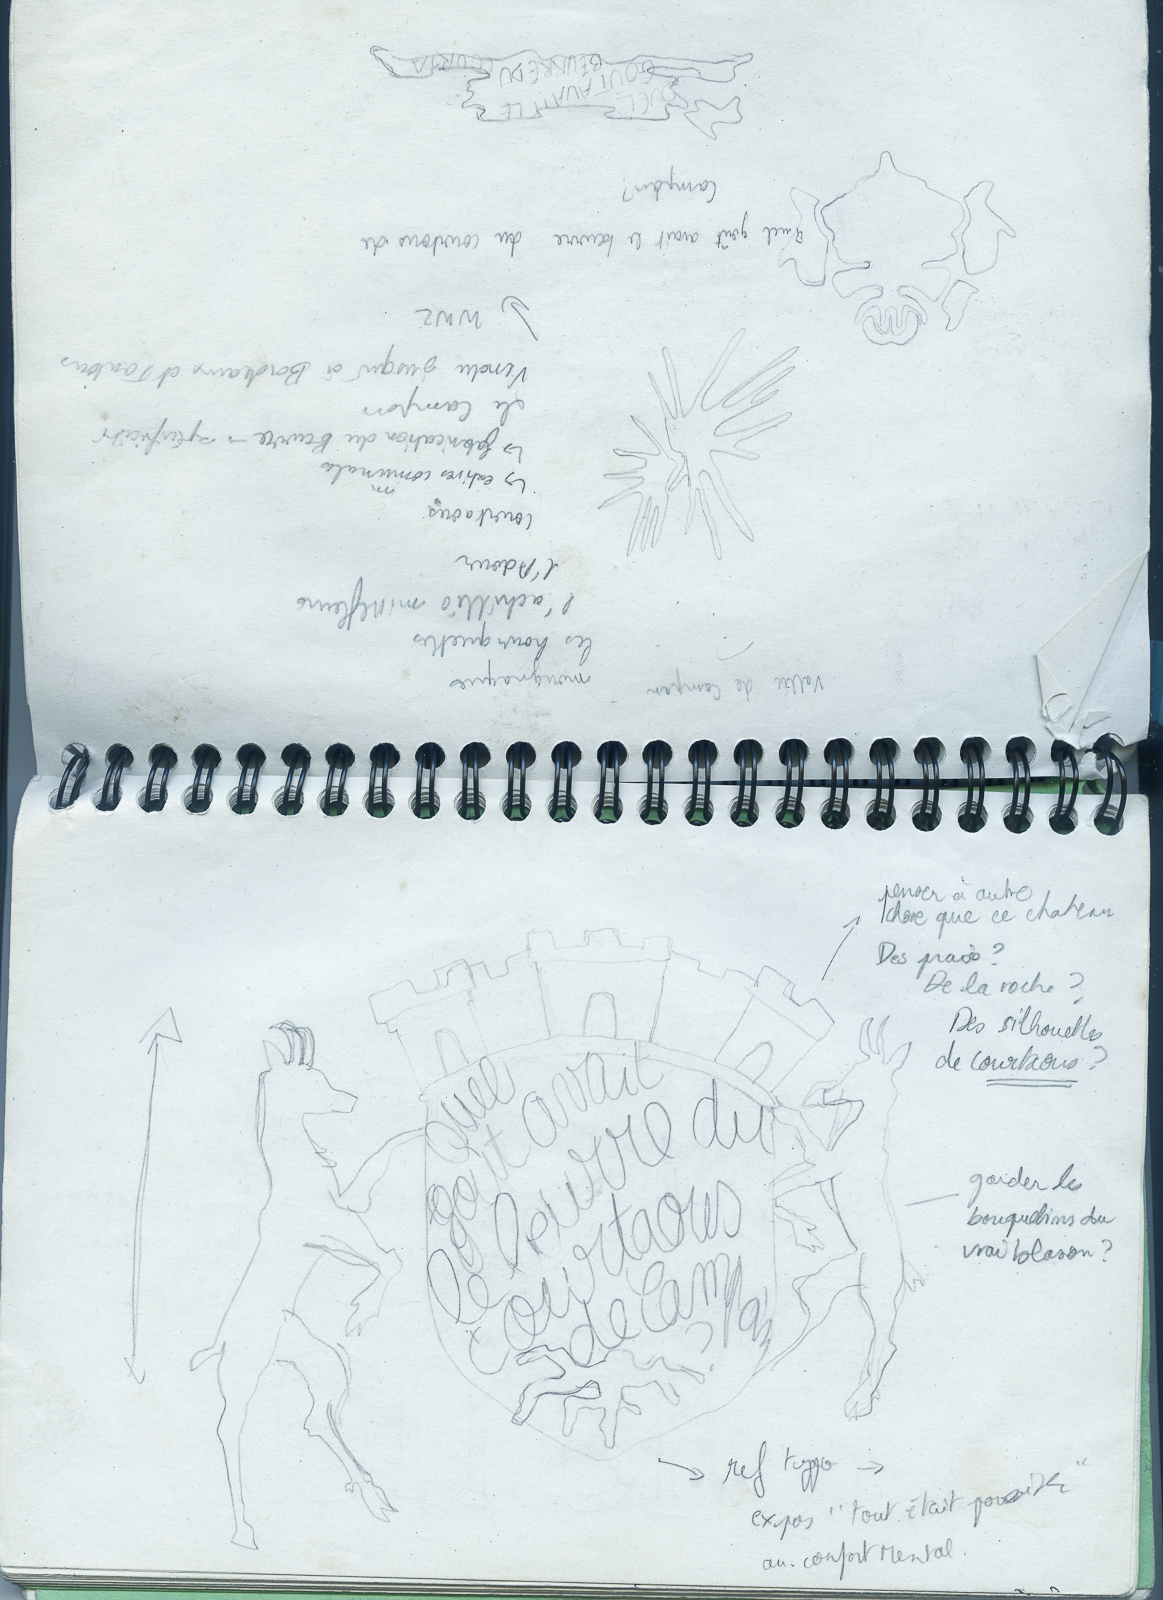 Vallée de Campan
mougnaque
les hourquettes
l'achillée millefleurs
l'Adour
courtaous
↳ estives communales
↳ fabrication du beurre → spécificité
de Campan
Vendu jusqu'à Bordeaux et
WW2
Quel goût avait le beurre du courtaous de
Campan?
QUEL
GOUT AVAIT LE
BEURRE DU COURTA
penser à autre
chose que ce chateau
De la roche ?
Des silhouettes
de courtaous ?
quel
goût avait
le beurre du
courtaous
de Campan
?
garder les
bouquetins du
vrai blason ?
ref typo →
expos "tout était possible"
au confort Mental.